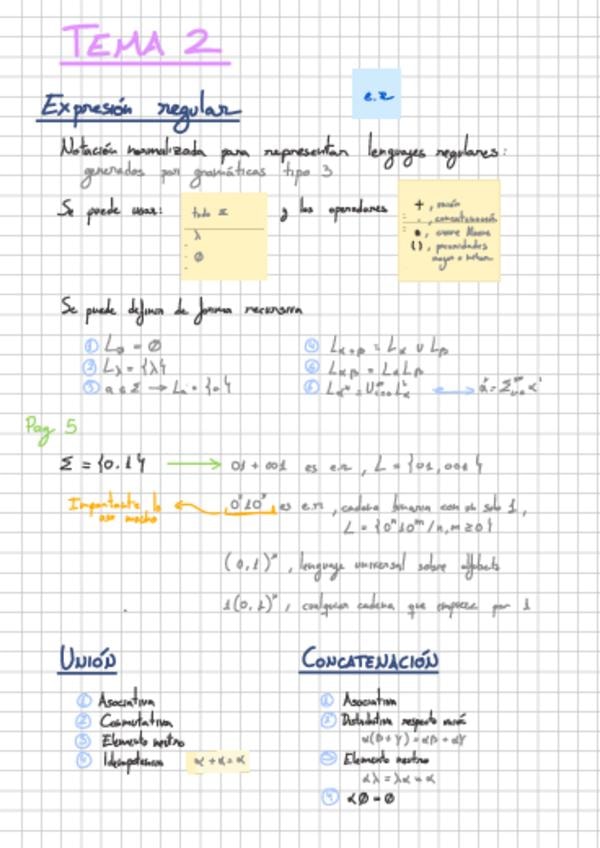 TEMA 2
e.r
Expresión regular
Notación normalizada para representar lenguajes regulares:
generados por gramáticas tipo 3
Se puede usar:
todo Σ
λ
∅
y los operadores
+, unión
·, concatenación
*, cierre Kleene
(), prioridades
Se puede definir de forma recursiva
① L∅ = ∅
② Lλ = {λ}
③ a ∈ Σ → La = {a}
④ Lα+β = Lα ∪ Lβ
Lαβ = LαLβ
Pag 5
Σ = {0,1}
01 + 001 es e.r, L = {01, 001}
Importante lo usa mucho
0*10* es e.r, cadena binaria con un solo 1,
L = {0ⁿ10ᵐ / n,m ≥ 0}
(0,1)*, lenguaje universal sobre alfabeto
1(0,1)*, cualquier cadena que empiece por 1
UNIÓN
① Asociativa
② Conmutativa
③ Elemento neutro
④ Idempotencia
α + α = α
CONCATENACIÓN
① Asociativa
② Distributiva respecto unión
α(β+γ) = αβ + αγ
③ Elemento neutro
αλ = λα = α
④ α∅ = ∅